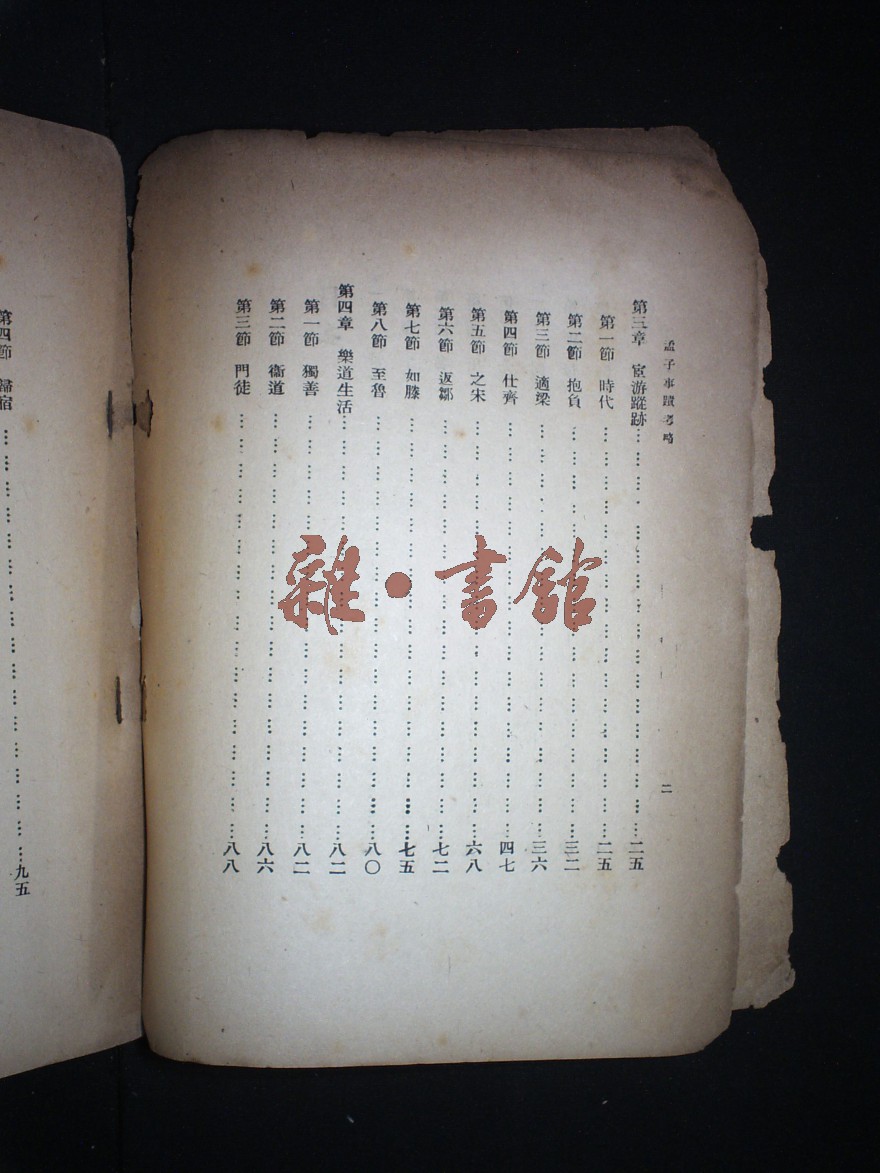 孟子事蹟考略
二
第三章 宦游蹤跡………………二五
第一節 時代………………二五
第二節 抱負………………三二
第三節 適梁………………三六
第四節 仕齊………………四七
第五節 之宋………………六八
第六節 返鄒………………七二
第七節 如滕………………七五
第八節 至魯………………八〇
第四章 樂道生活………………八二
第一節 獨善………………八二
第二節 衞道………………八六
第三節 門徒………………八八
第四節 歸宿………………九五
雜·書館